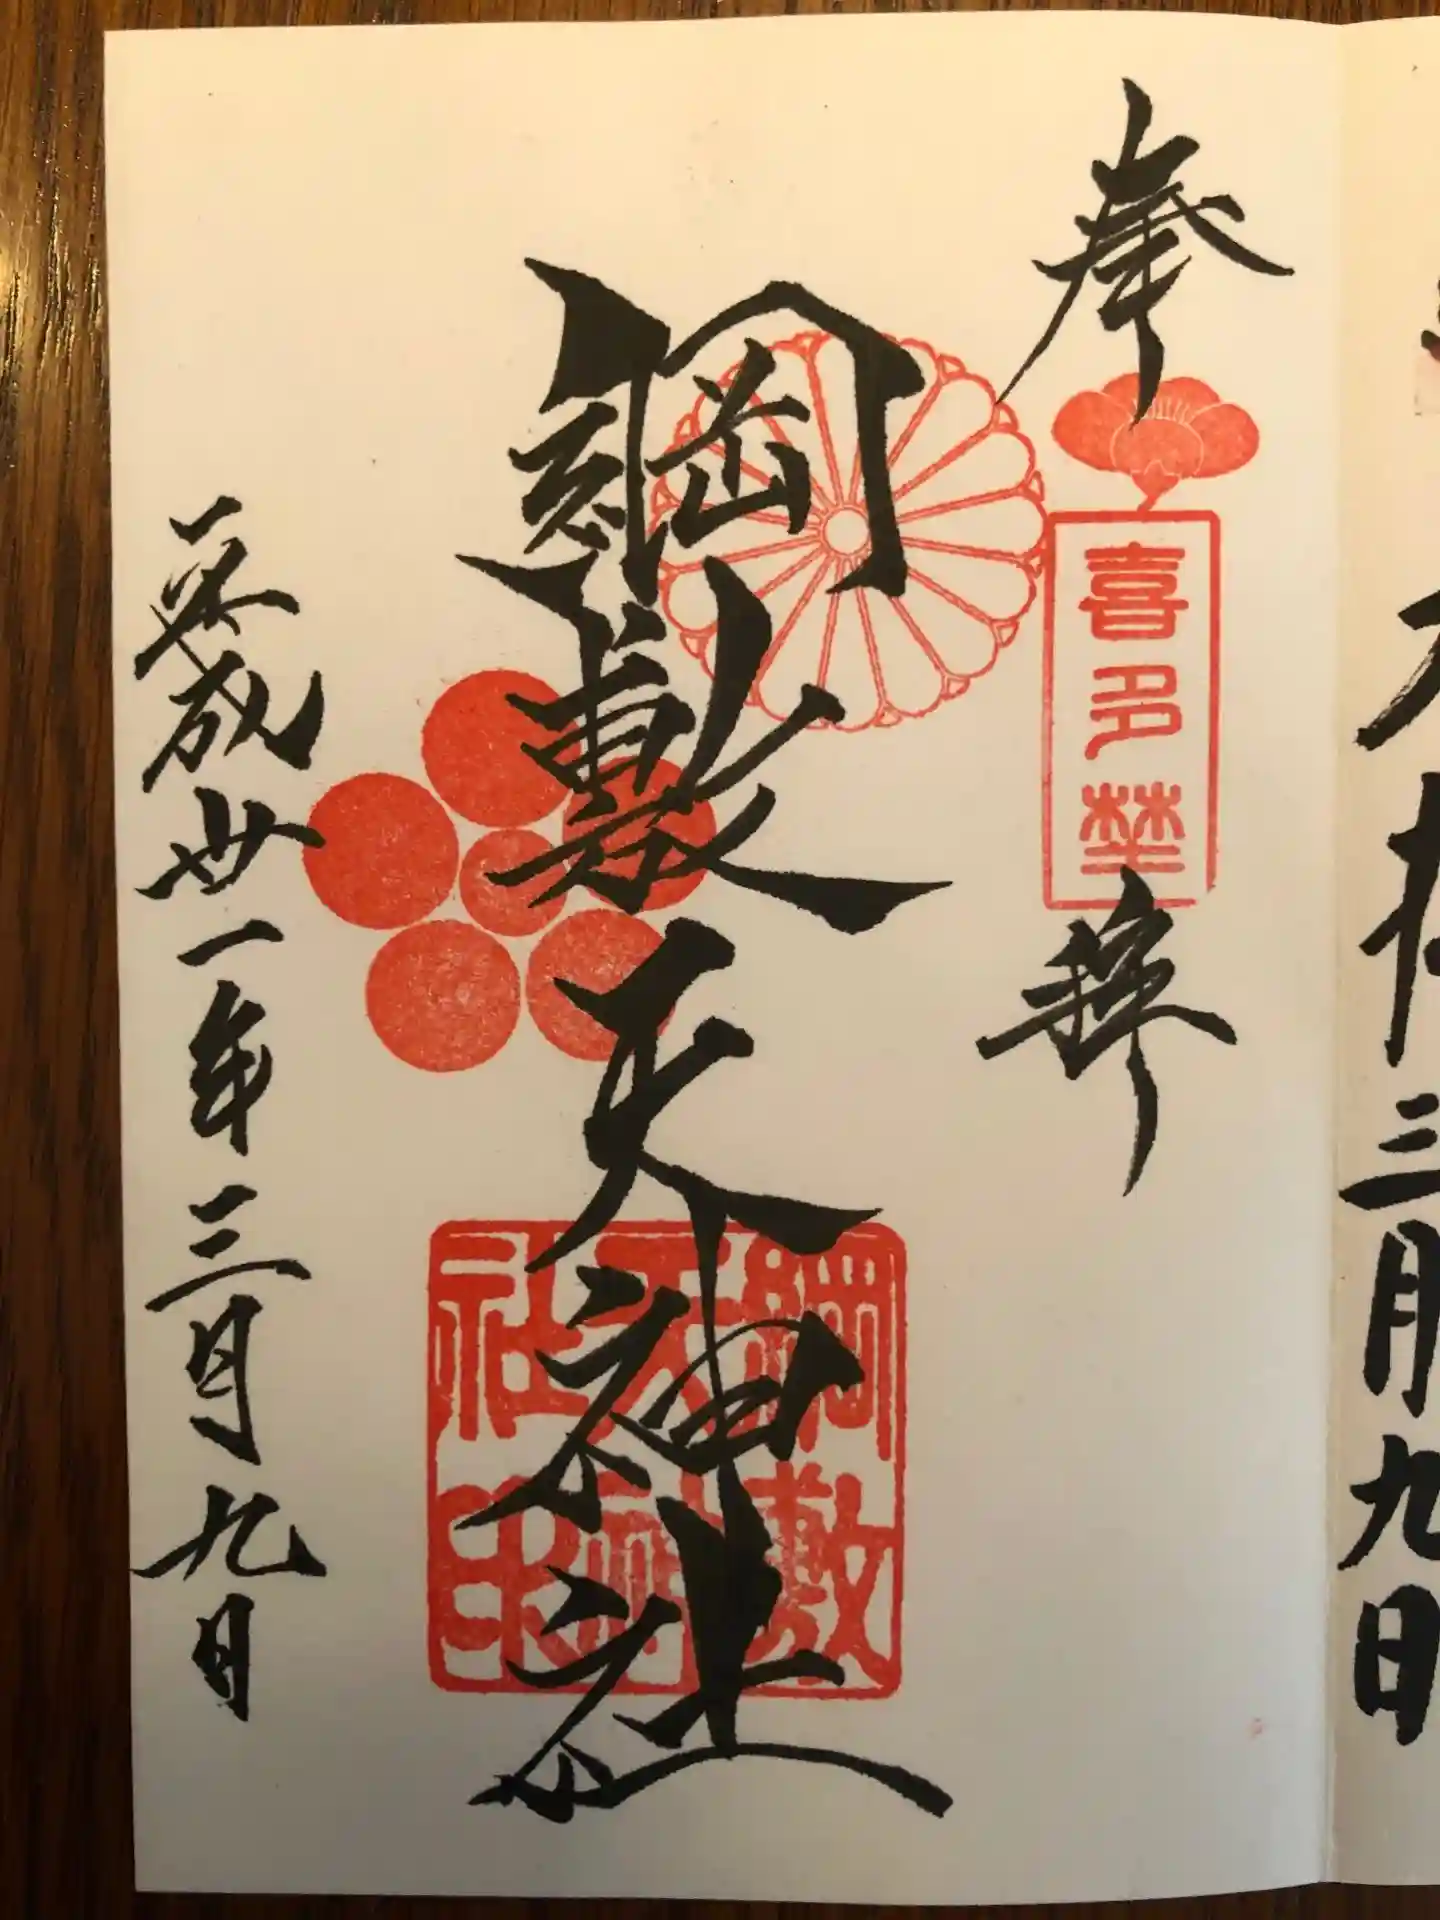 奉
喜多埜
拝
綱敷天神社
綱敷
天神
社印
平成卅一年三月九日
三月九日